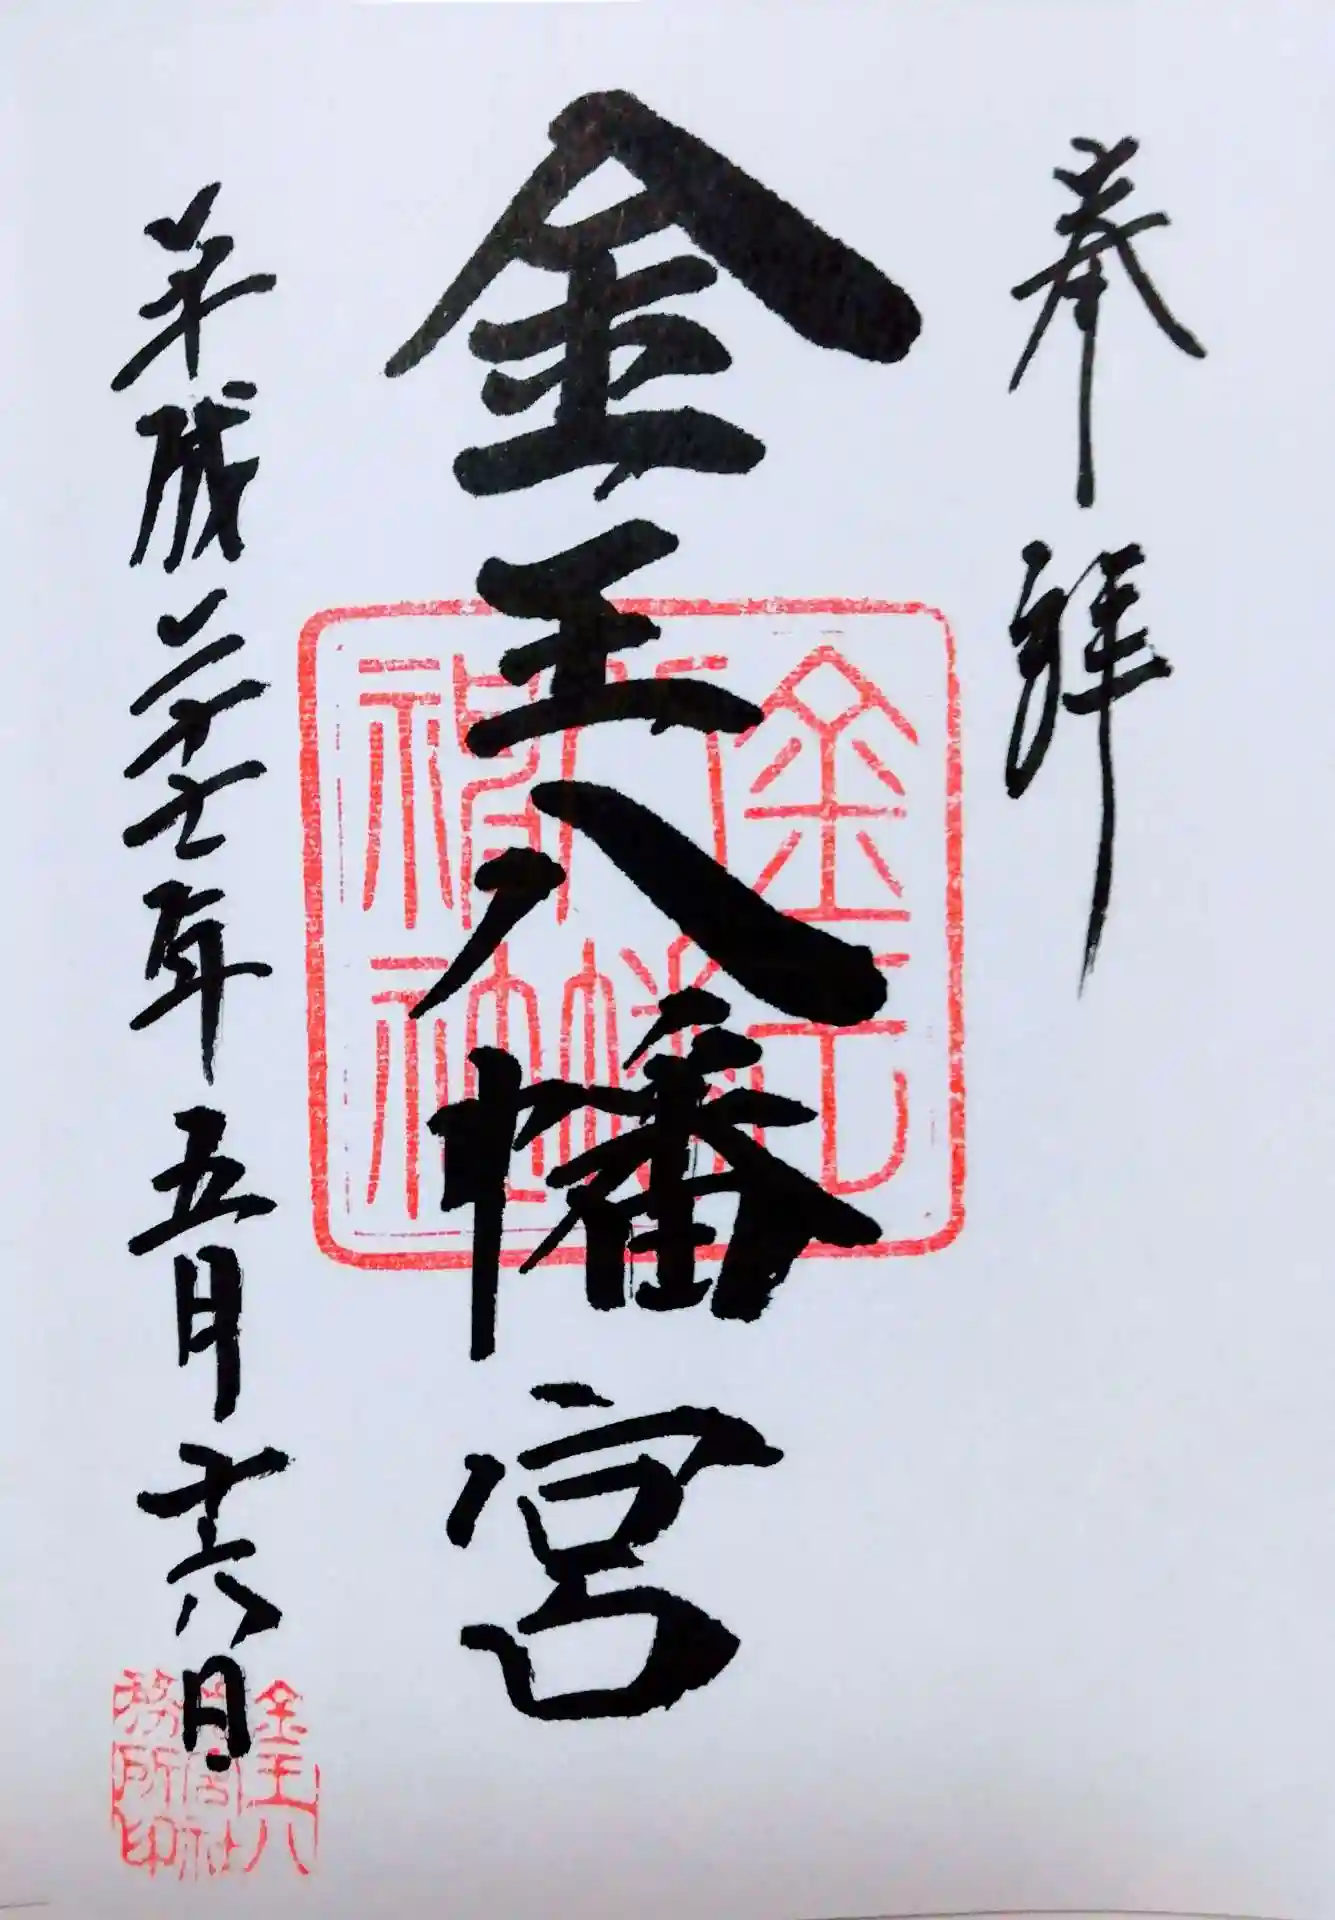 奉拝
金王八幡宮
金王
八幡
神社
平成二十七年五月十六日
金王八
幡宮社
務所印